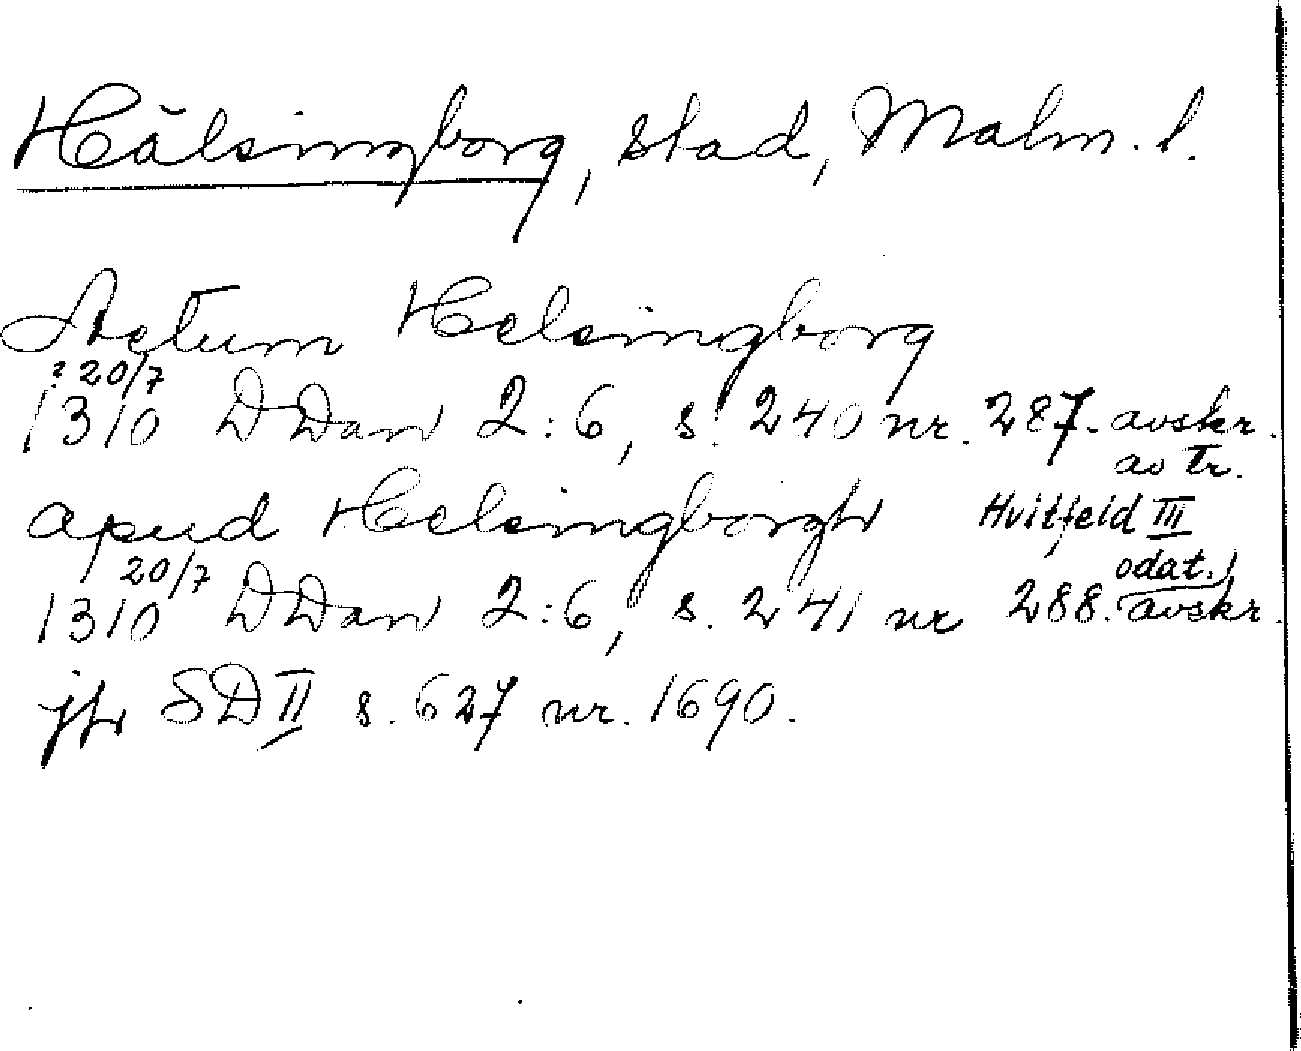 Hälsingborg, stad, Malm. l.
Actum Helsingborg
? 20/7
1310 DDan 2:6, s. 240 nr. 287. avskr.
av tr.
apud Helsingborgh Hvitfeld III
20/7 odat.
1310 DDan 2:6, s. 241 nr 288. avskr.
jfr SD II s. 627 nr. 1690.